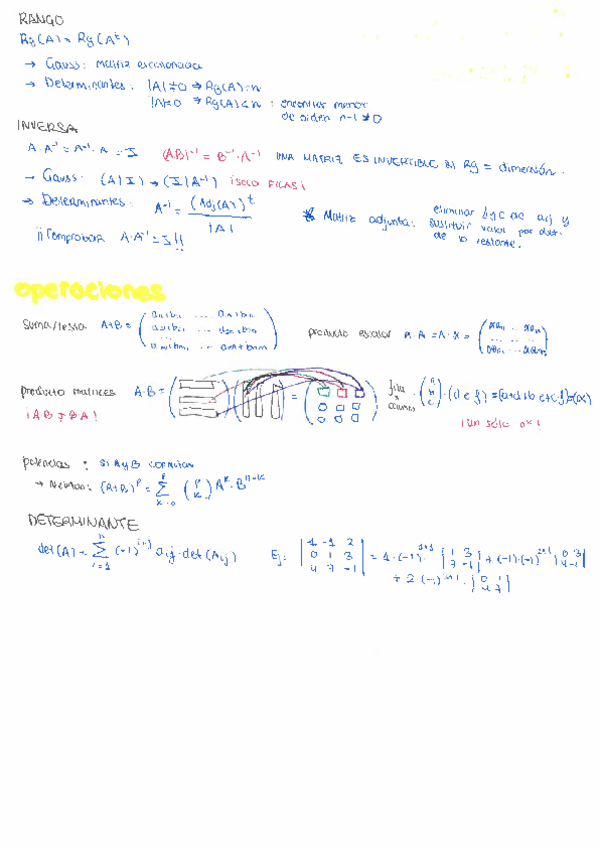 RANGO
Rg(A) = Rg(Aᵗ)
→ Gauss: Matriz escalonada
→ Determinantes: |A| ≠ 0 → Rg(A) = n
|A| = 0 → Rg(A) < n : encontrar menor
de orden n-1 ≠ 0
INVERSA
A·A⁻¹ = A⁻¹·A = I (AB)⁻¹ = B⁻¹·A⁻¹ UNA MATRIZ ES INVERTIBLE si Rg = dimensión.
→ Gauss: (A|I) → (I|A⁻¹) ¡SOLO FILAS!
→ Determinantes: A⁻¹ = (Adj(A))ᵗ / |A|
* Matriz adjunta: eliminar f y c de aij y
sustituir valor por det.
de lo restante.
¡¡Comprobar A·A⁻¹ = I!!
operaciones
suma/resta A+B =
producto escalar
producto matrices A·B =
fila x columna
¡AB ≠ BA!
¡un sólo nº!
potencias : si A y B conmutan
→ Newton: (A+B)ᵖ = Σ
DETERMINANTE
det(A) = Σ (-1)ⁱ⁺ʲ aij · det(Aij) Ej: | 1 -1 2 | = 1·(-1)¹⁺¹ | 1 3 | + (-1)·(-1)²⁺¹ | 0 3 |
| 0 1 3 | | 7 -1 | | 4 -1 |
| 4 7 -1 | + 2·(-1) | 0 1 |
| 4 7 |